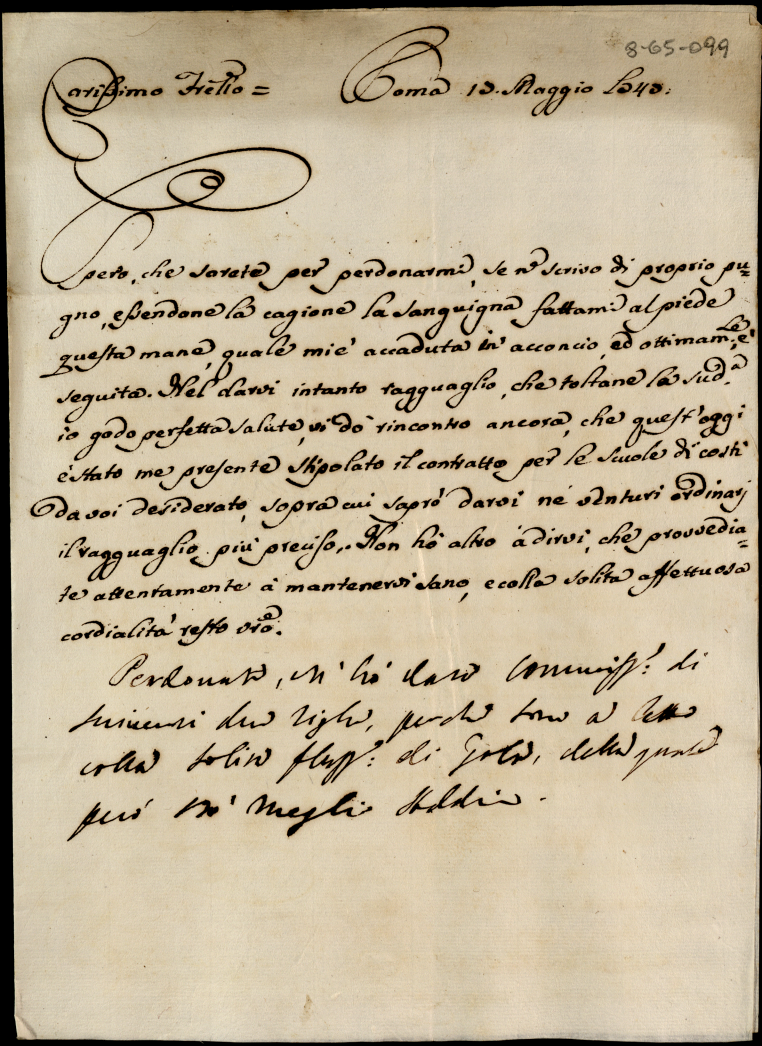 8-65-099
Carissimo Frello = Roma 13. Maggio 1843:
Spero, che sarete per perdonarmi, se nō scrivo di proprio pu=
gno, essendone la cagione la sanguigna fattami al piede
questa mane, quale mi è accaduta in acconcio, ed ottimamte, è
seguita. Nel darvi intanto ragguaglio, che toltane la sudª
io godo perfetta salute, vi dò rincontro ancora, che quest'oggi
è stato me presente stipolato il contratto per le scuole di costì
da voi desiderato, sopra cui saprò darvi né venturi ordinarj
il ragguaglio più preciso. Non hò altro à dirvi, che provvedia=
te attentamente à mantenervi sano, e colla solita affettuosa
cordialità resto vrō.
Perdonate, hò dato commiss: di
scrivervi due righe, perche sono a letto
colla solita fluss: di Gola, della quale
però stò meglio